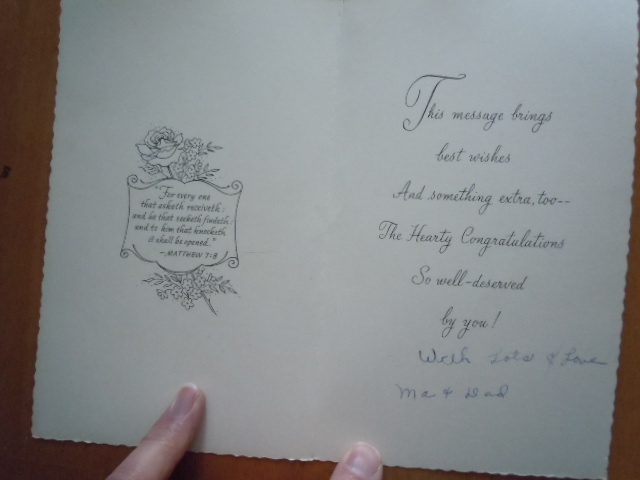 "For every one
that asketh receiveth:
and he that seeketh findeth:
and to him that knocketh
it shall be opened."
—MATTHEW 7:8
This message brings
best wishes
And something extra, too--
The Hearty Congratulations
So well-deserved
by you!
With Lots of Love
Ma & Dad